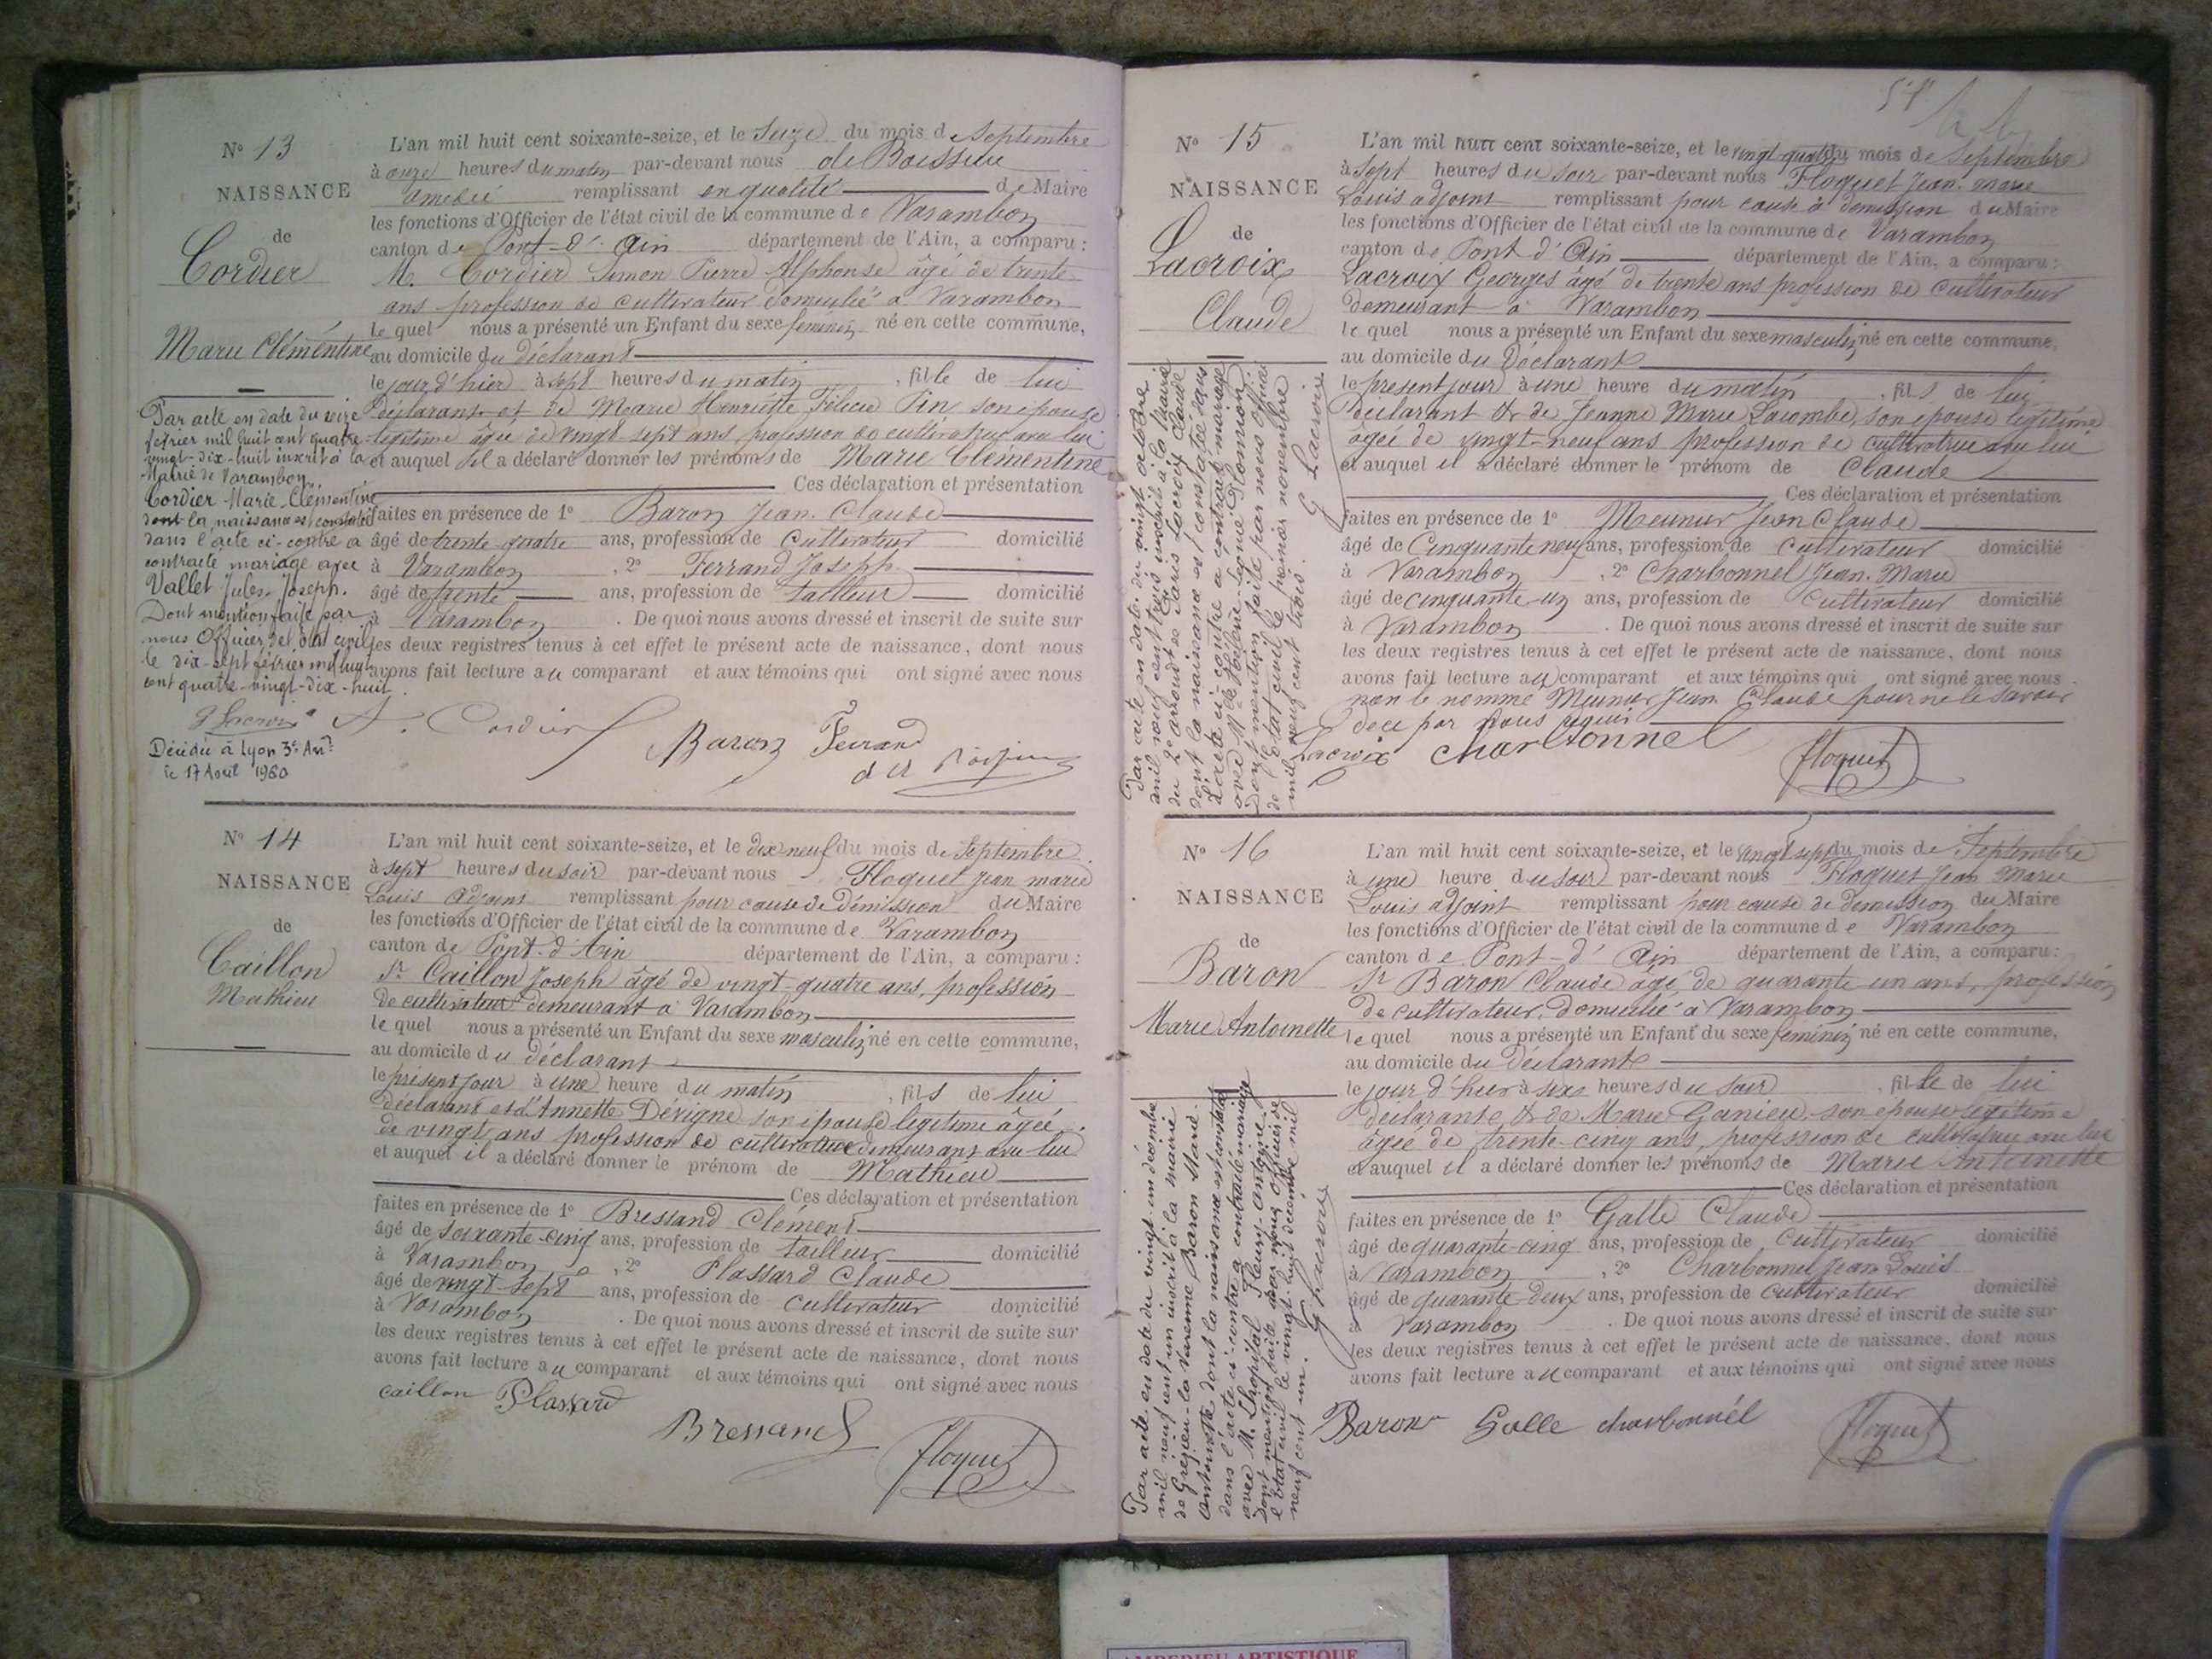 N° 13
NAISSANCE
de
Cordier
Marie Clémentine
Par acte en date du seize
février mil huit cent quatre-
vingt-dix-huit inscrit à la
Mairie de Varambon,
Cordier Marie-Clémentine
dont la naissance est constatée
dans l'acte ci-contre a
contracté mariage avec
Vallet Jules Joseph.
Dont mention faite par
nous Officier de l'état civil
le dix-sept février mil huit
cent quatre-vingt-dix-huit.
G Lacroix
Décédée à Lyon 3e Arrt
le 17 Avril 1960
L'an mil huit cent soixante-seize, et le Seize du mois de Septembre
à onze heures du matin par-devant nous de Boissieu
Amédée remplissant en qualité de Maire
les fonctions d'Officier de l'état civil de la commune de Varambon
canton de Pont-d'Ain département de l'Ain, a comparu :
M. Cordier Simon Pierre Alphonse âgé de trente
ans profession de cultivateur domicilié à Varambon
le quel nous a présenté un Enfant du sexe féminin né en cette commune,
au domicile du déclarant
le jour d'hier à sept heures du matin, fille de lui
déclarant et de Marie Henriette Félicie Pin son épouse
légitime âgée de vingt-sept ans, profession de cultivatrice avec lui
et auquel il a déclaré donner les prénoms de Marie Clémentine
Ces déclaration et présentation
faites en présence de 1° Baron Jean-Claude
âgé de trente-quatre ans, profession de Cultivateur domicilié
à Varambon, 2° Ferrand Joseph
âgé de trente ans, profession de tailleur domicilié
à Varambon. De quoi nous avons dressé et inscrit de suite sur
les deux registres tenus à cet effet le présent acte de naissance, dont nous
avons fait lecture au comparant et aux témoins qui ont signé avec nous
A. Cordier
Baron Ferrand
N° 14
NAISSANCE
de
Caillon
Mathieu
L'an mil huit cent soixante-seize, et le dix-neuf du mois de Septembre
à sept heures du soir par-devant nous Floquet Jean Marie
Louis adjoint remplissant pour cause de démission du Maire
les fonctions d'Officier de l'état civil de la commune de Varambon
canton de Pont-d'Ain département de l'Ain, a comparu :
Sr Caillon Joseph âgé de vingt-quatre ans, profession
de cultivateur demeurant à Varambon
le quel nous a présenté un Enfant du sexe masculin né en cette commune,
au domicile du déclarant
le présent jour à une heure du matin, fils de lui
déclarant et d'Annette Dévigne son épouse légitime âgée
de vingt ans profession de cultivatrice demeurant avec lui
et auquel il a déclaré donner le prénom de Mathieu
Ces déclaration et présentation
faites en présence de 1° Bressand Clément
âgé de soixante-cinq ans, profession de tailleur domicilié
à Varambon, 2° Plassard Claude
âgé de vingt-sept ans, profession de cultivateur domicilié
à Varambon. De quoi nous avons dressé et inscrit de suite sur
les deux registres tenus à cet effet le présent acte de naissance, dont nous
avons fait lecture au comparant et aux témoins qui ont signé avec nous
caillon Plassard
Bressand
Floquet
N° 15
NAISSANCE
de
Lacroix
Claude
Par acte en date du vingt octobre
mil neuf cent trois inscrit à la Mairie
du 2e arrondt de Paris Lacroix Claude
dont la naissance est constatée dans
l'acte ci-contre a contracté mariage
dont mention faite par nous officier
de l'état civil le premier novembre
mil neuf cent trois.
G Lacroix
L'an mil huit cent soixante-seize, et le vingt quatre du mois de Septembre
à sept heures du soir par-devant nous Floquet Jean-Marie
Louis adjoint remplissant pour cause de démission du Maire
les fonctions d'Officier de l'état civil de la commune de Varambon
canton de Pont d'Ain département de l'Ain, a comparu :
Lacroix Georges âgé de trente ans profession de cultivateur
demeurant à Varambon
le quel nous a présenté un Enfant du sexe masculin né en cette commune,
au domicile du Déclarant
le présent jour à une heure du matin, fils de lui
déclarant & de Jeanne Marie Lacombe, son épouse légitime
âgée de vingt-neuf ans profession de cultivatrice avec lui
et auquel il a déclaré donner le prénom de Claude
Ces déclaration et présentation
faites en présence de 1° Meunier Jean Claude
âgé de Cinquante neuf ans, profession de cultivateur domicilié
à Varambon, 2° Charbonnel Jean-Marie
âgé de cinquante-un ans, profession de Cultivateur domicilié
à Varambon. De quoi nous avons dressé et inscrit de suite sur
les deux registres tenus à cet effet le présent acte de naissance, dont nous
avons fait lecture au comparant et aux témoins qui ont signé avec nous
non le nommé Meunier Jean Claude pour ne le savoir
de ce par nous requis
Lacroix Charbonnel
Floquet
N° 16
NAISSANCE
de
Baron
Marie Antoinette
Par acte en date du vingt-un décembre
mil neuf cent un inscrit à la mairie
de Grézieu-la-Varenne Baron Marie
Antoinette dont la naissance est constatée
dans l'acte ci-contre a contracté mariage
avec M. Lhopital Fleury-Antoine
dont mention faite par nous officier de
l'état civil le vingt-huit décembre mil
neuf cent un.
G Lacroix
L'an mil huit cent soixante-seize, et le vingt sept du mois de Septembre
à une heure du soir par-devant nous Floquet Jean Marie
Louis adjoint remplissant pour cause de démission du Maire
les fonctions d'Officier de l'état civil de la commune de Varambon
canton de Pont-d'Ain département de l'Ain, a comparu :
Sr Baron Claude âgé de quarante un ans, profession
de cultivateur, domicilié à Varambon
le quel nous a présenté un Enfant du sexe féminin né en cette commune,
au domicile du Déclarant
le jour d'hier à six heures du soir, fille de lui
déclarant & de Marie Ganieu son épouse légitime
âgée de trente-cinq ans, profession de cultivatrice avec lui
et auquel il a déclaré donner les prénoms de Marie Antoinette
Ces déclaration et présentation
faites en présence de 1° Galle Claude
âgé de quarante-cinq ans, profession de Cultivateur domicilié
à Varambon, 2° Charbonnel Jean Louis
âgé de quarante-deux ans, profession de Cultivateur domicilié
à Varambon. De quoi nous avons dressé et inscrit de suite sur
les deux registres tenus à cet effet le présent acte de naissance, dont nous
avons fait lecture au comparant et aux témoins qui ont signé avec nous
Baron Galle charbonnél
Floquet
AMBERIEU ARTISTIQUE